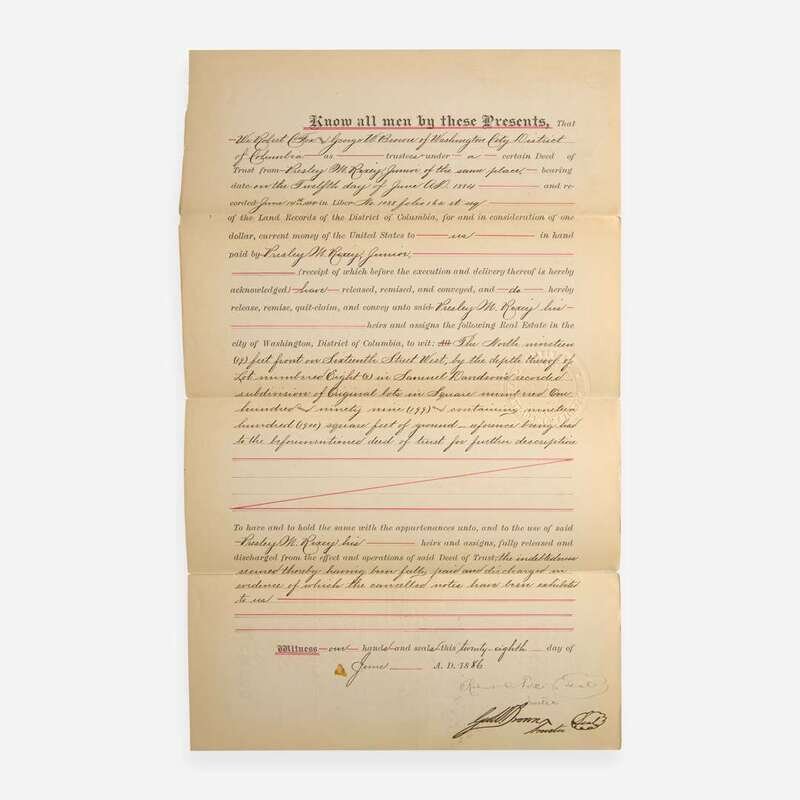 Know all men by these Presents, That
We Robert C Fox & George W Brown of Washington City District
of Columbia as trustees under a certain Deed of
Trust from Presley M. Rixey, Junior of the same place, bearing
date on the Twelfth day of June A.D. 1884 and re-
corded June in Liber No. folio et seq
of the Land Records of the District of Columbia, for and in consideration of one
dollar, current money of the United States to us in hand
paid by Presley M. Rixey, Junior,
(receipt of which before the execution and delivery thereof is hereby
acknowledged) have released, remised, and conveyed, and do hereby
release, remise, quit-claim, and convey unto said Presley M. Rixey his
heirs and assigns the following Real Estate in the
city of Washington, District of Columbia, to wit: All The North nineteen
(19) feet front on Sixteenth Street West, by the depth thereof of
Lot numbered Eight (8) in Samuel Davidson's recorded
subdivision of Original lots in Square numbered One
hundred and ninety nine (199) containing nineteen
hundred (1900) square feet of ground reference being had
to the beforementioned deed of trust for further description
To have and to hold the same with the appurtenances unto, and to the use of said
Presley M. Rixey his heirs and assigns, fully released and
discharged from the effect and operations of said Deed of Trust, the indebtedness
secured thereby having been fully paid and discharged in
evidence of which the cancelled notes have been exhibited
to us
Witness our hands and seals this twenty-eighth day of
June A. D. 1886
(Seal)
trustee
Geo W Brown (Seal)
trustee